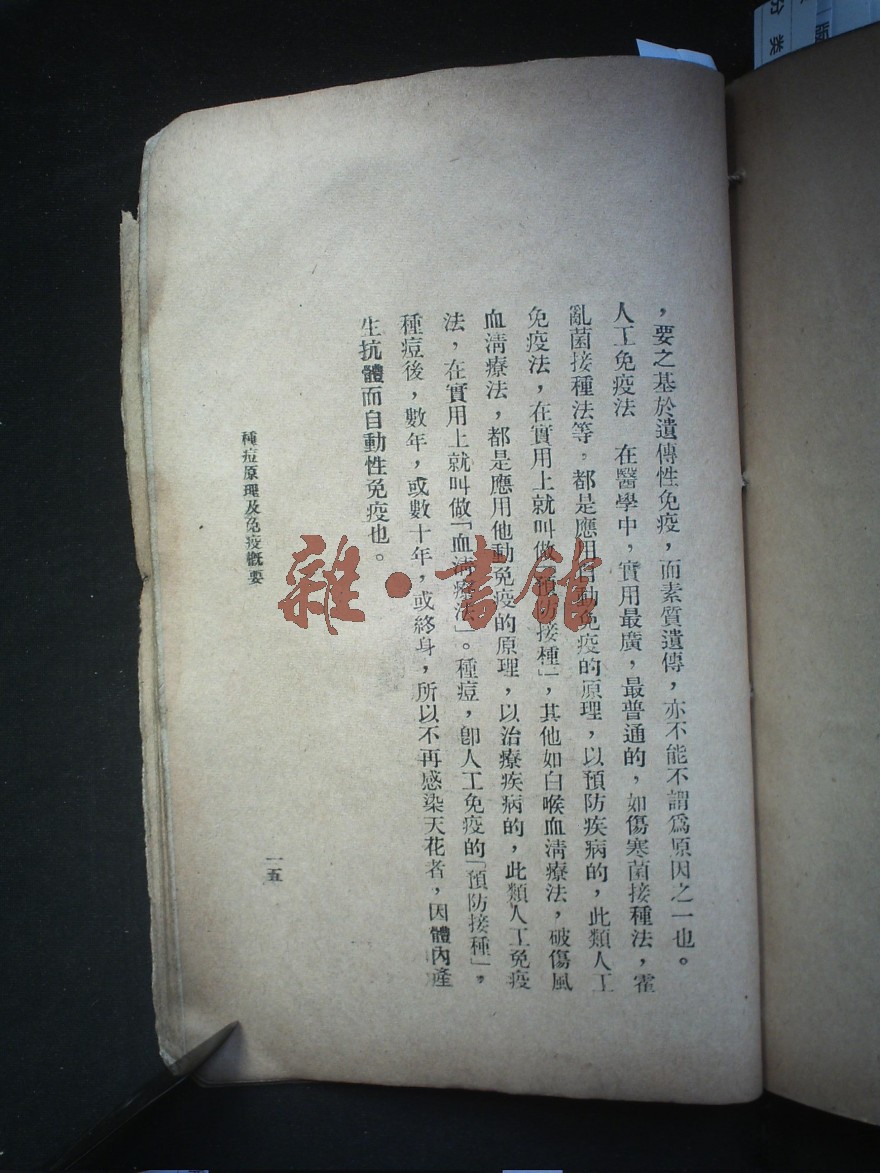 ，要之基於遺傳性免疫，而素質遺傳，亦不能不謂爲原因之一也。
人工免疫法　在醫學中，實用最廣，最普通的，如傷寒菌接種法，霍
亂菌接種法等。都是應用自動免疫的原理，以預防疾病的，此類人工
免疫法，在實用上就叫做「預防接種」，其他如白喉血淸療法，破傷風
血淸療法，都是應用他動免疫的原理，以治療疾病的，此類人工免疫
法，在實用上就叫做「血淸療法」。種痘，卽人工免疫的「預防接種」，
種痘後，數年，或數十年，或終身，所以不再感染天花者，因體內產
生抗體而自動性免疫也。
種痘原理及免疫槪要
一五
雜·書館